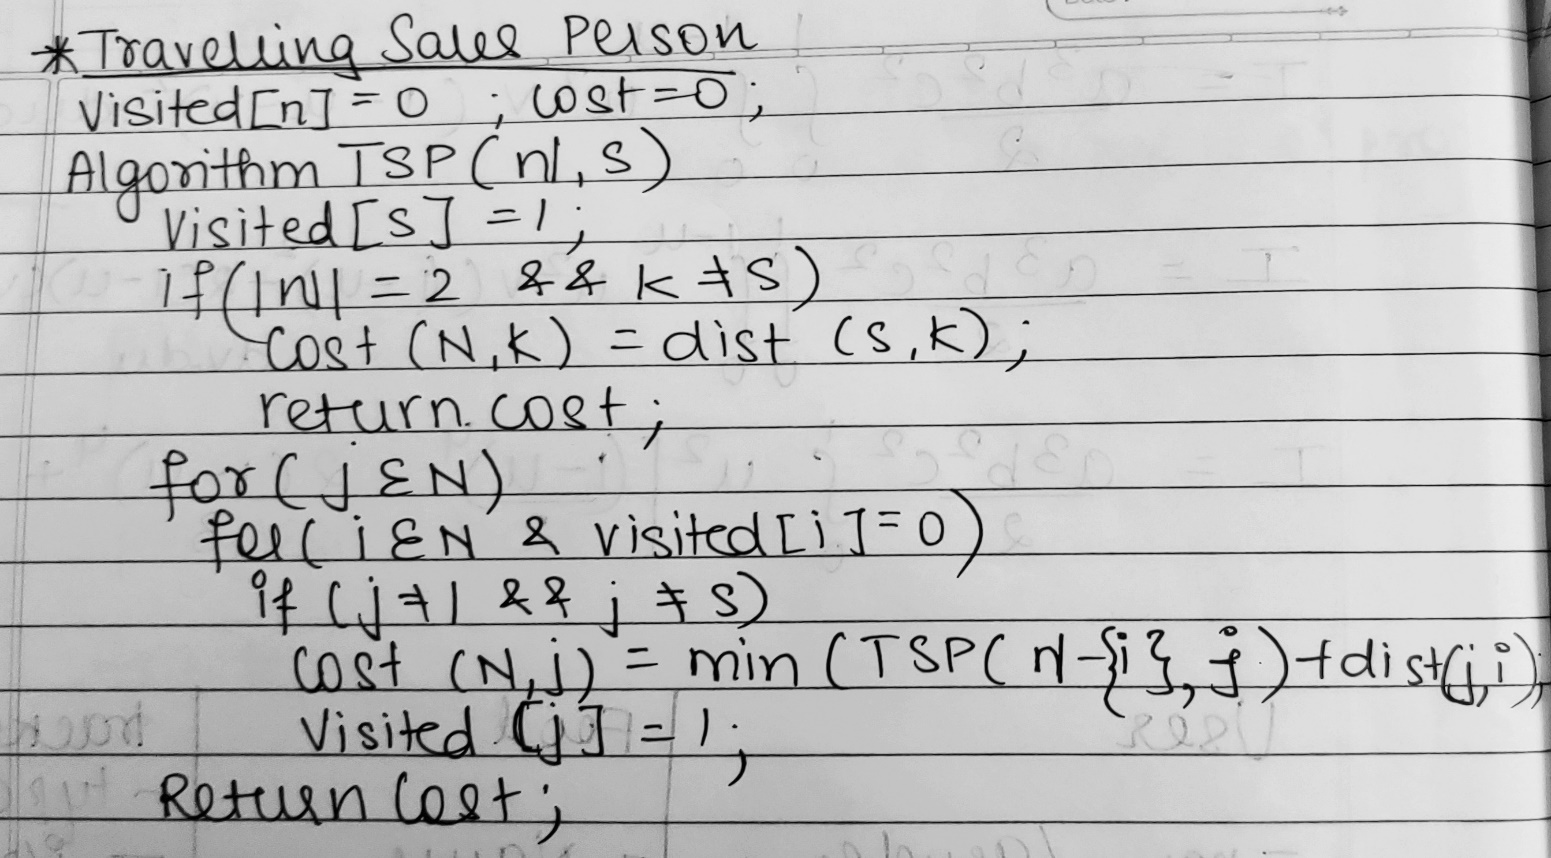 *Travelling Sales Person
Visited[n] = 0 ; cost = 0;
Algorithm TSP(N, s)
Visited[s] = 1;
if(|N| = 2 && k ≠ s)
Cost (N, k) = dist (s, k);
return cost;
for (j ε N)
for (i ε N & visited[i] = 0)
if (j ≠ 1 && j ≠ s)
cost (N, j) = min (TSP( N-{i}, j ) + dist(j, i);
Visited [j] = 1;
Return Cost;